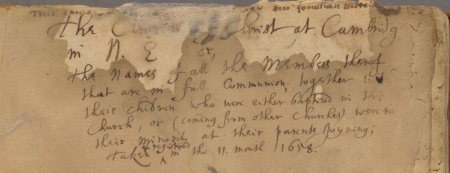 This came
the C of Christ at Cambridg
in N. E or,
the Names of all the Members thereof
that are in full Communion, together
their children who were either baptised in this
Church, or (coming from other Churches) were in
their minority at their parents joyning;
taken & registred in the 11. month 1658.